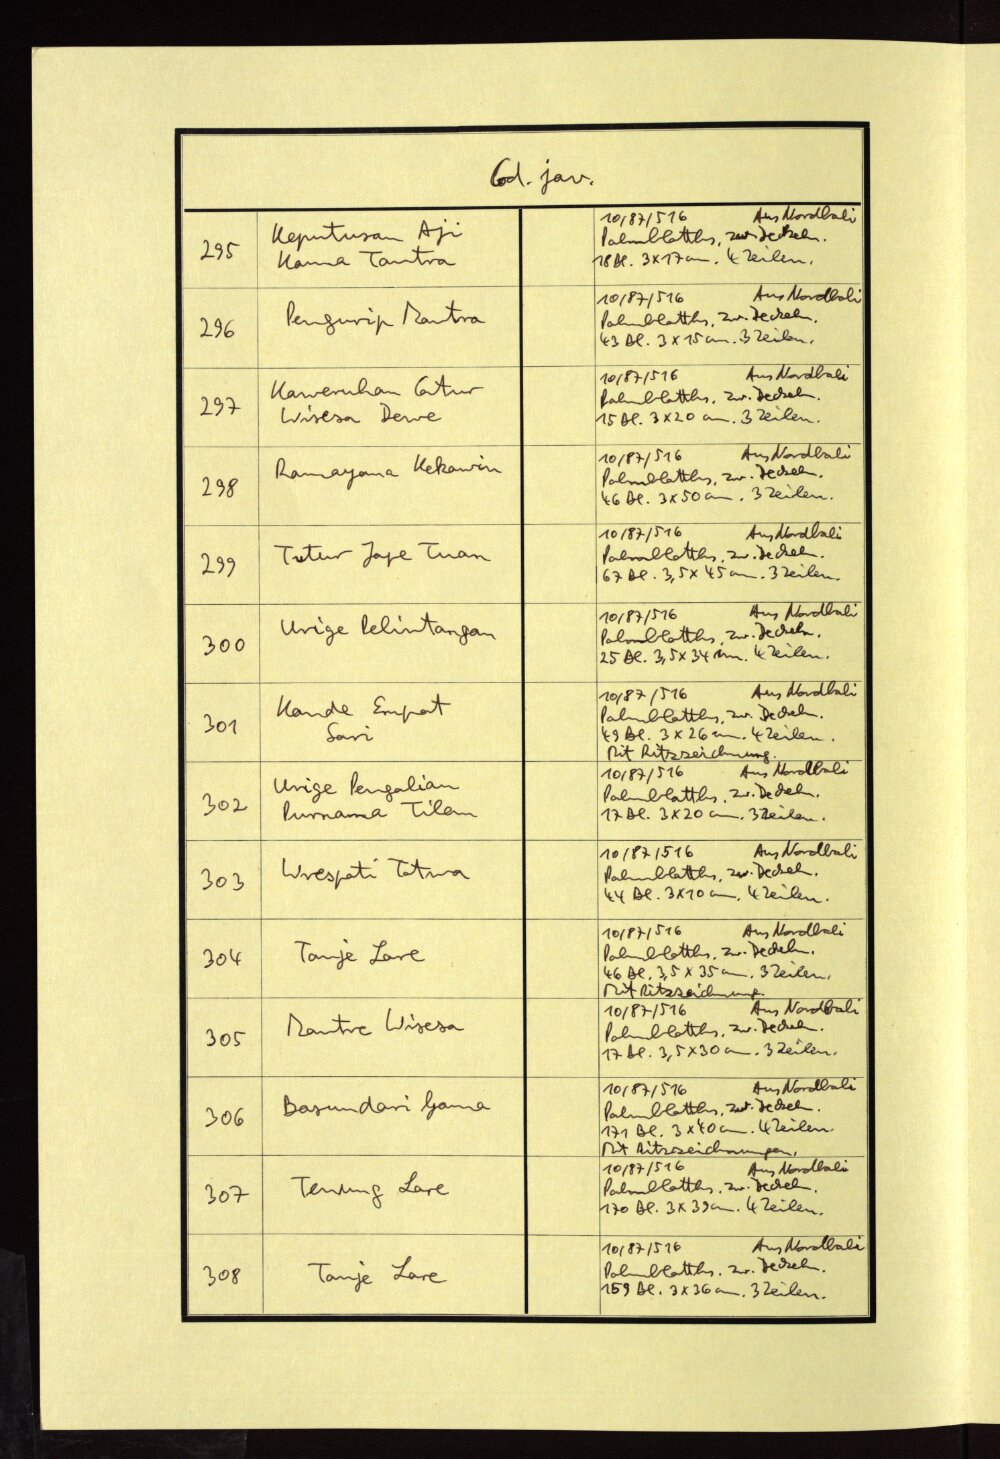 Cod. jav.
295
Keputusan Aji
Kama Tantra
10/87/516 Aus Nordbali
Palmblatths, zw. Deckeln.
18 Bl. 3 x 17 cm. 4 Zeilen.
296
Pengurip Mantra
10/87/516 Aus Nordbali
Palmblatths, zw. Deckeln.
43 Bl. 3 x 15 cm. 3 Zeilen.
297
Kaweruhan Catur
Wisesa Dewe
10/87/516 Aus Nordbali
Palmblatths, zw. Deckeln.
15 Bl. 3 x 20 cm. 3 Zeilen.
298
Ramayana Kekawin
10/87/516 Aus Nordbali
Palmblatths, zw. Deckeln.
46 Bl. 3 x 50 cm. 3 Zeilen.
299
Tutur Jape Tuan
10/87/516 Aus Nordbali
Palmblatths, zw. Deckeln.
67 Bl. 3,5 x 45 cm. 3 Zeilen.
300
Urige Pelintangan
10/87/516 Aus Nordbali
Palmblatths, zw. Deckeln.
25 Bl. 3,5 x 34 cm. 4 Zeilen.
301
Kande Empat
Sari
10/87/516 Aus Nordbali
Palmblatths, zw. Deckeln.
49 Bl. 3 x 26 cm. 4 Zeilen.
Mit Ritzzeichnung.
302
Urige Pengalian
Purnama Tilem
10/87/516 Aus Nordbali
Palmblatths, zw. Deckeln.
17 Bl. 3 x 20 cm. 3 Zeilen.
303
Wrespati Tatwa
10/87/516 Aus Nordbali
Palmblatths, zw. Deckeln.
44 Bl. 3 x 10 cm. 4 Zeilen.
304
Tanje Lare
10/87/516 Aus Nordbali
Palmblatths, zw. Deckeln.
46 Bl. 3,5 x 35 cm. 3 Zeilen.
Mit Ritzzeichnung.
305
Mantre Wisesa
10/87/516 Aus Nordbali
Palmblatths, zw. Deckeln.
17 Bl. 3,5 x 30 cm. 3 Zeilen.
306
Basundari Gama
10/87/516 Aus Nordbali
Palmblatths, zw. Deckeln.
171 Bl. 3 x 40 cm. 4 Zeilen.
Mit Ritzzeichnungen.
307
Tenung Lare
10/87/516 Aus Nordbali
Palmblatths. zw. Deckeln.
170 Bl. 3 x 39 cm. 4 Zeilen.
308
Tanje Lare
10/87/516 Aus Nordbali
Palmblatths. zw. Deckeln.
159 Bl. 3 x 36 cm. 3 Zeilen.